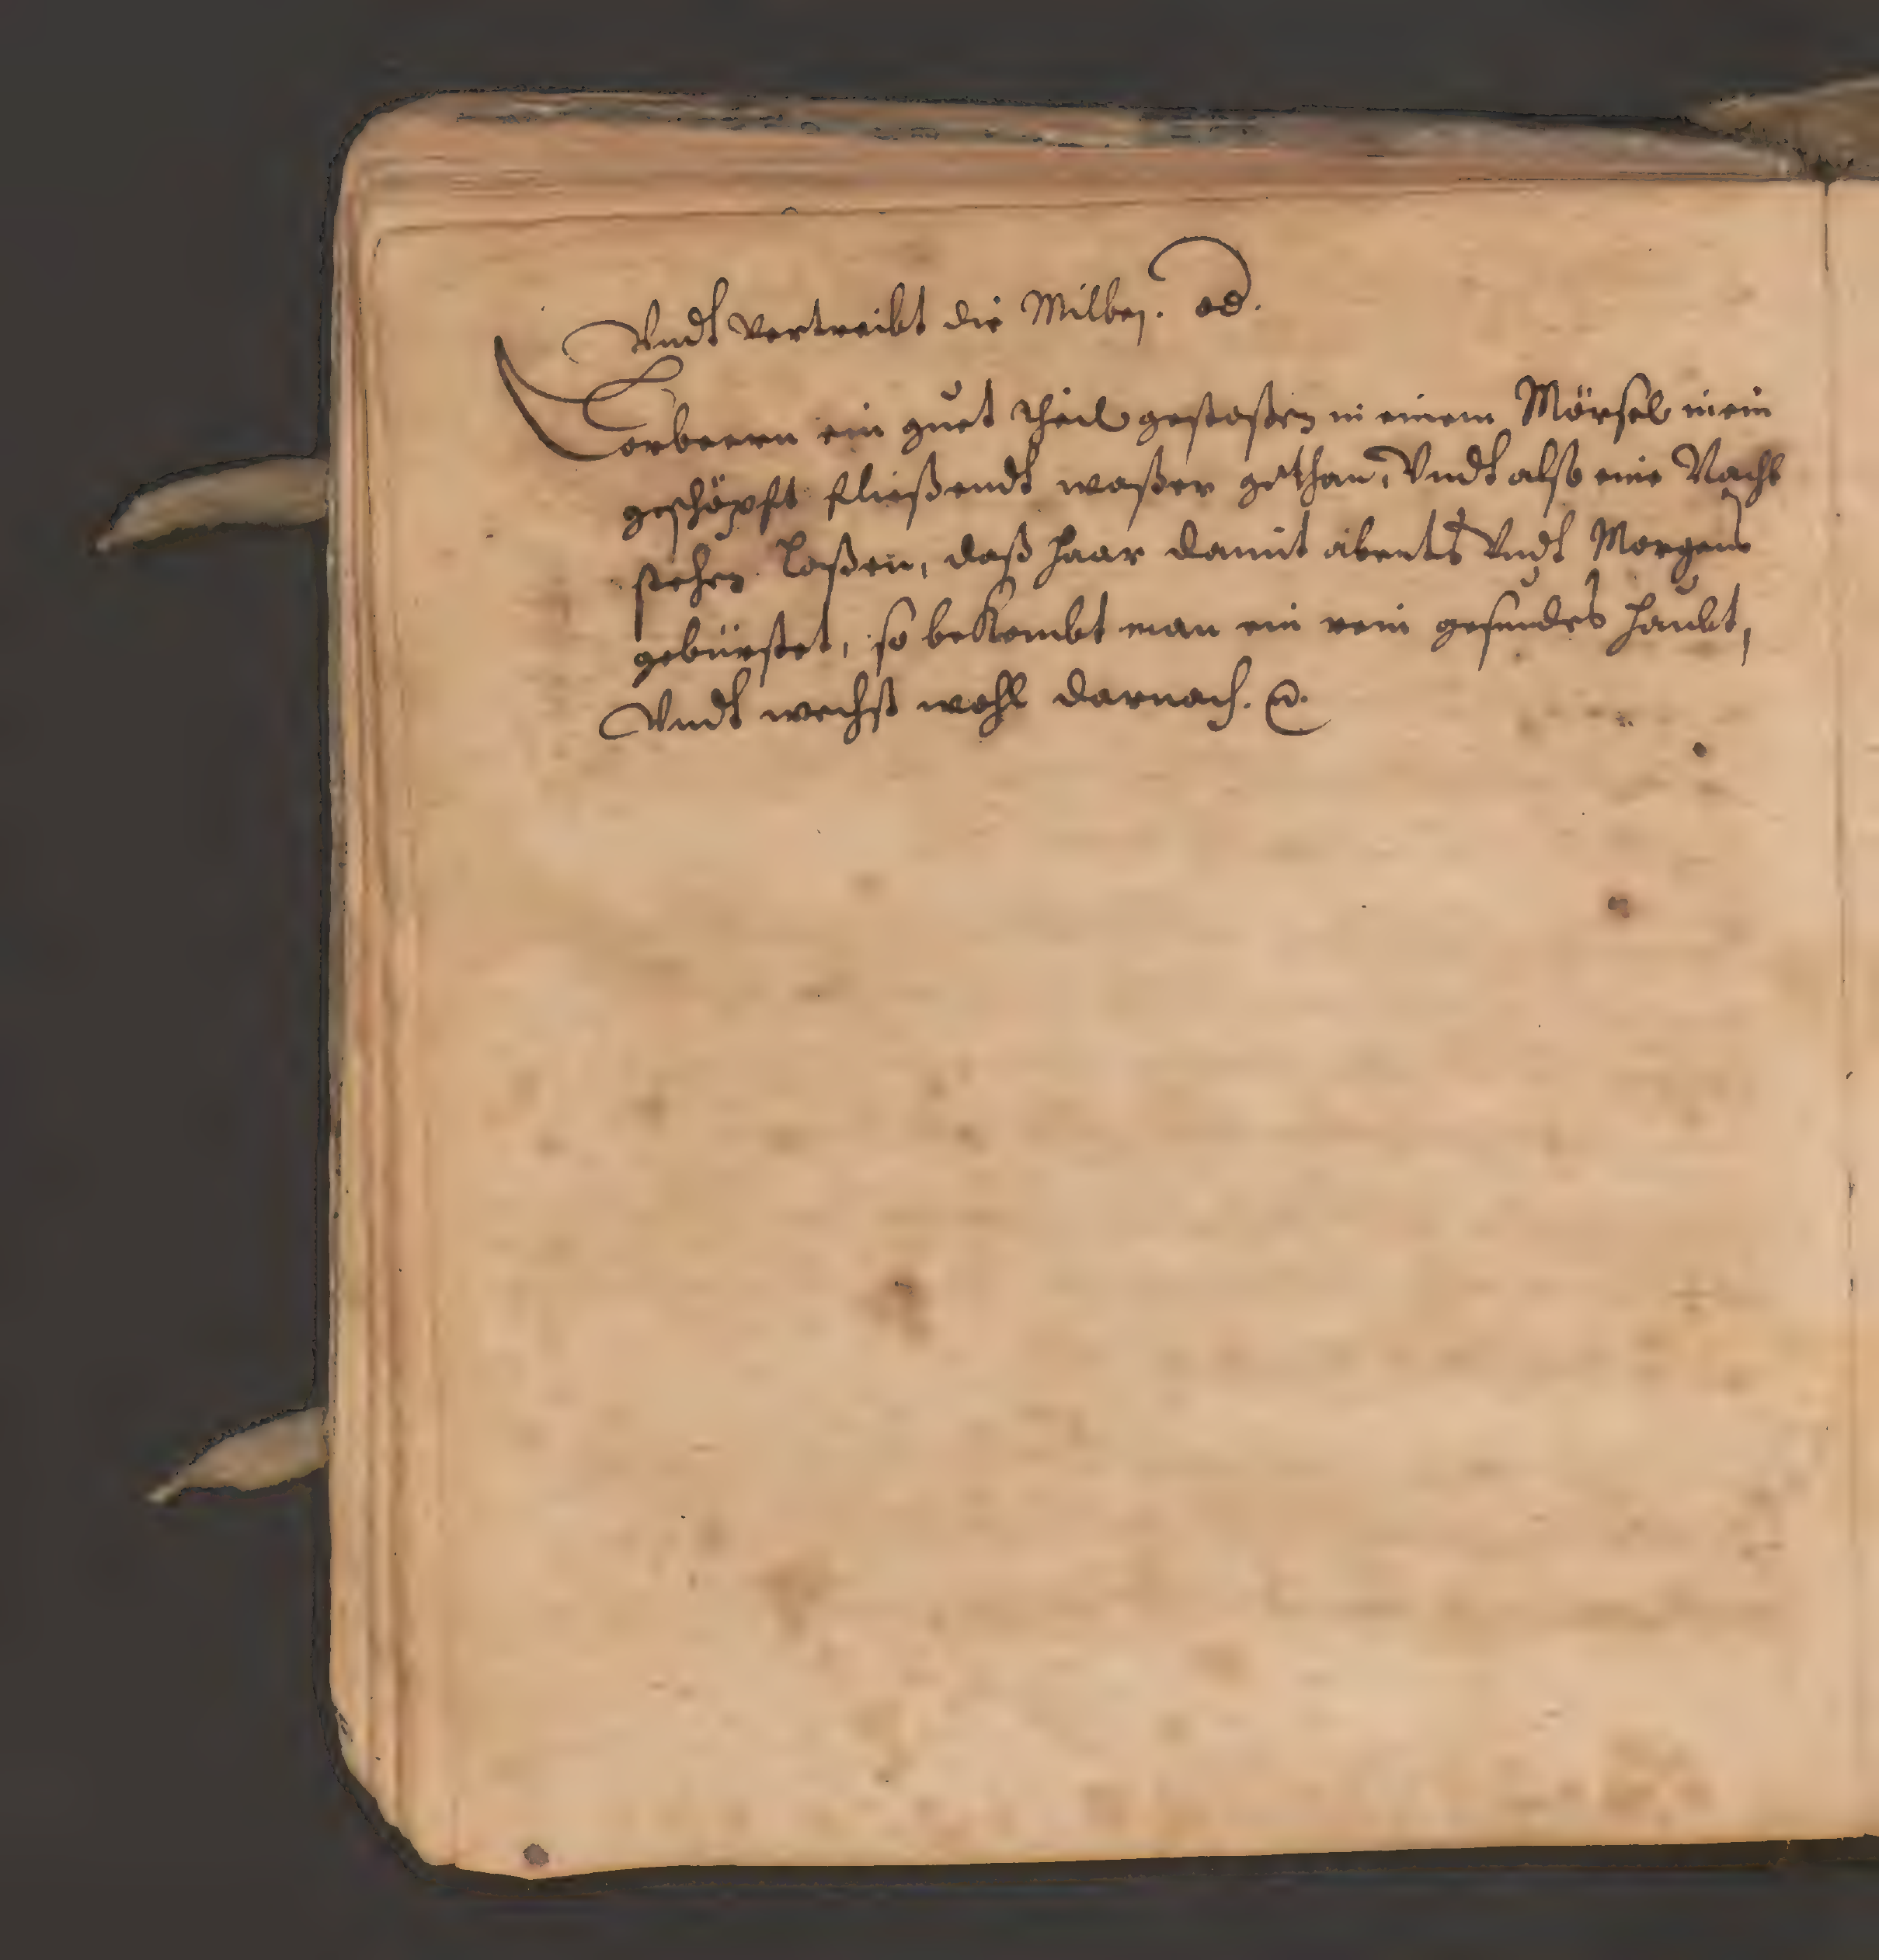 Vndt vertreibt die Milben. od.
Lorbeern ein guet theil gestoßen in einem Mörsel in ein
geschöpft fließendt waßer gethan, Vndt also eine Nacht
stehen laßen, daß haar damit abents Vndt Morgens
gebürstet, so bekombt man ein rein gesundes haubt,
Vndt wechst wohl darnach.